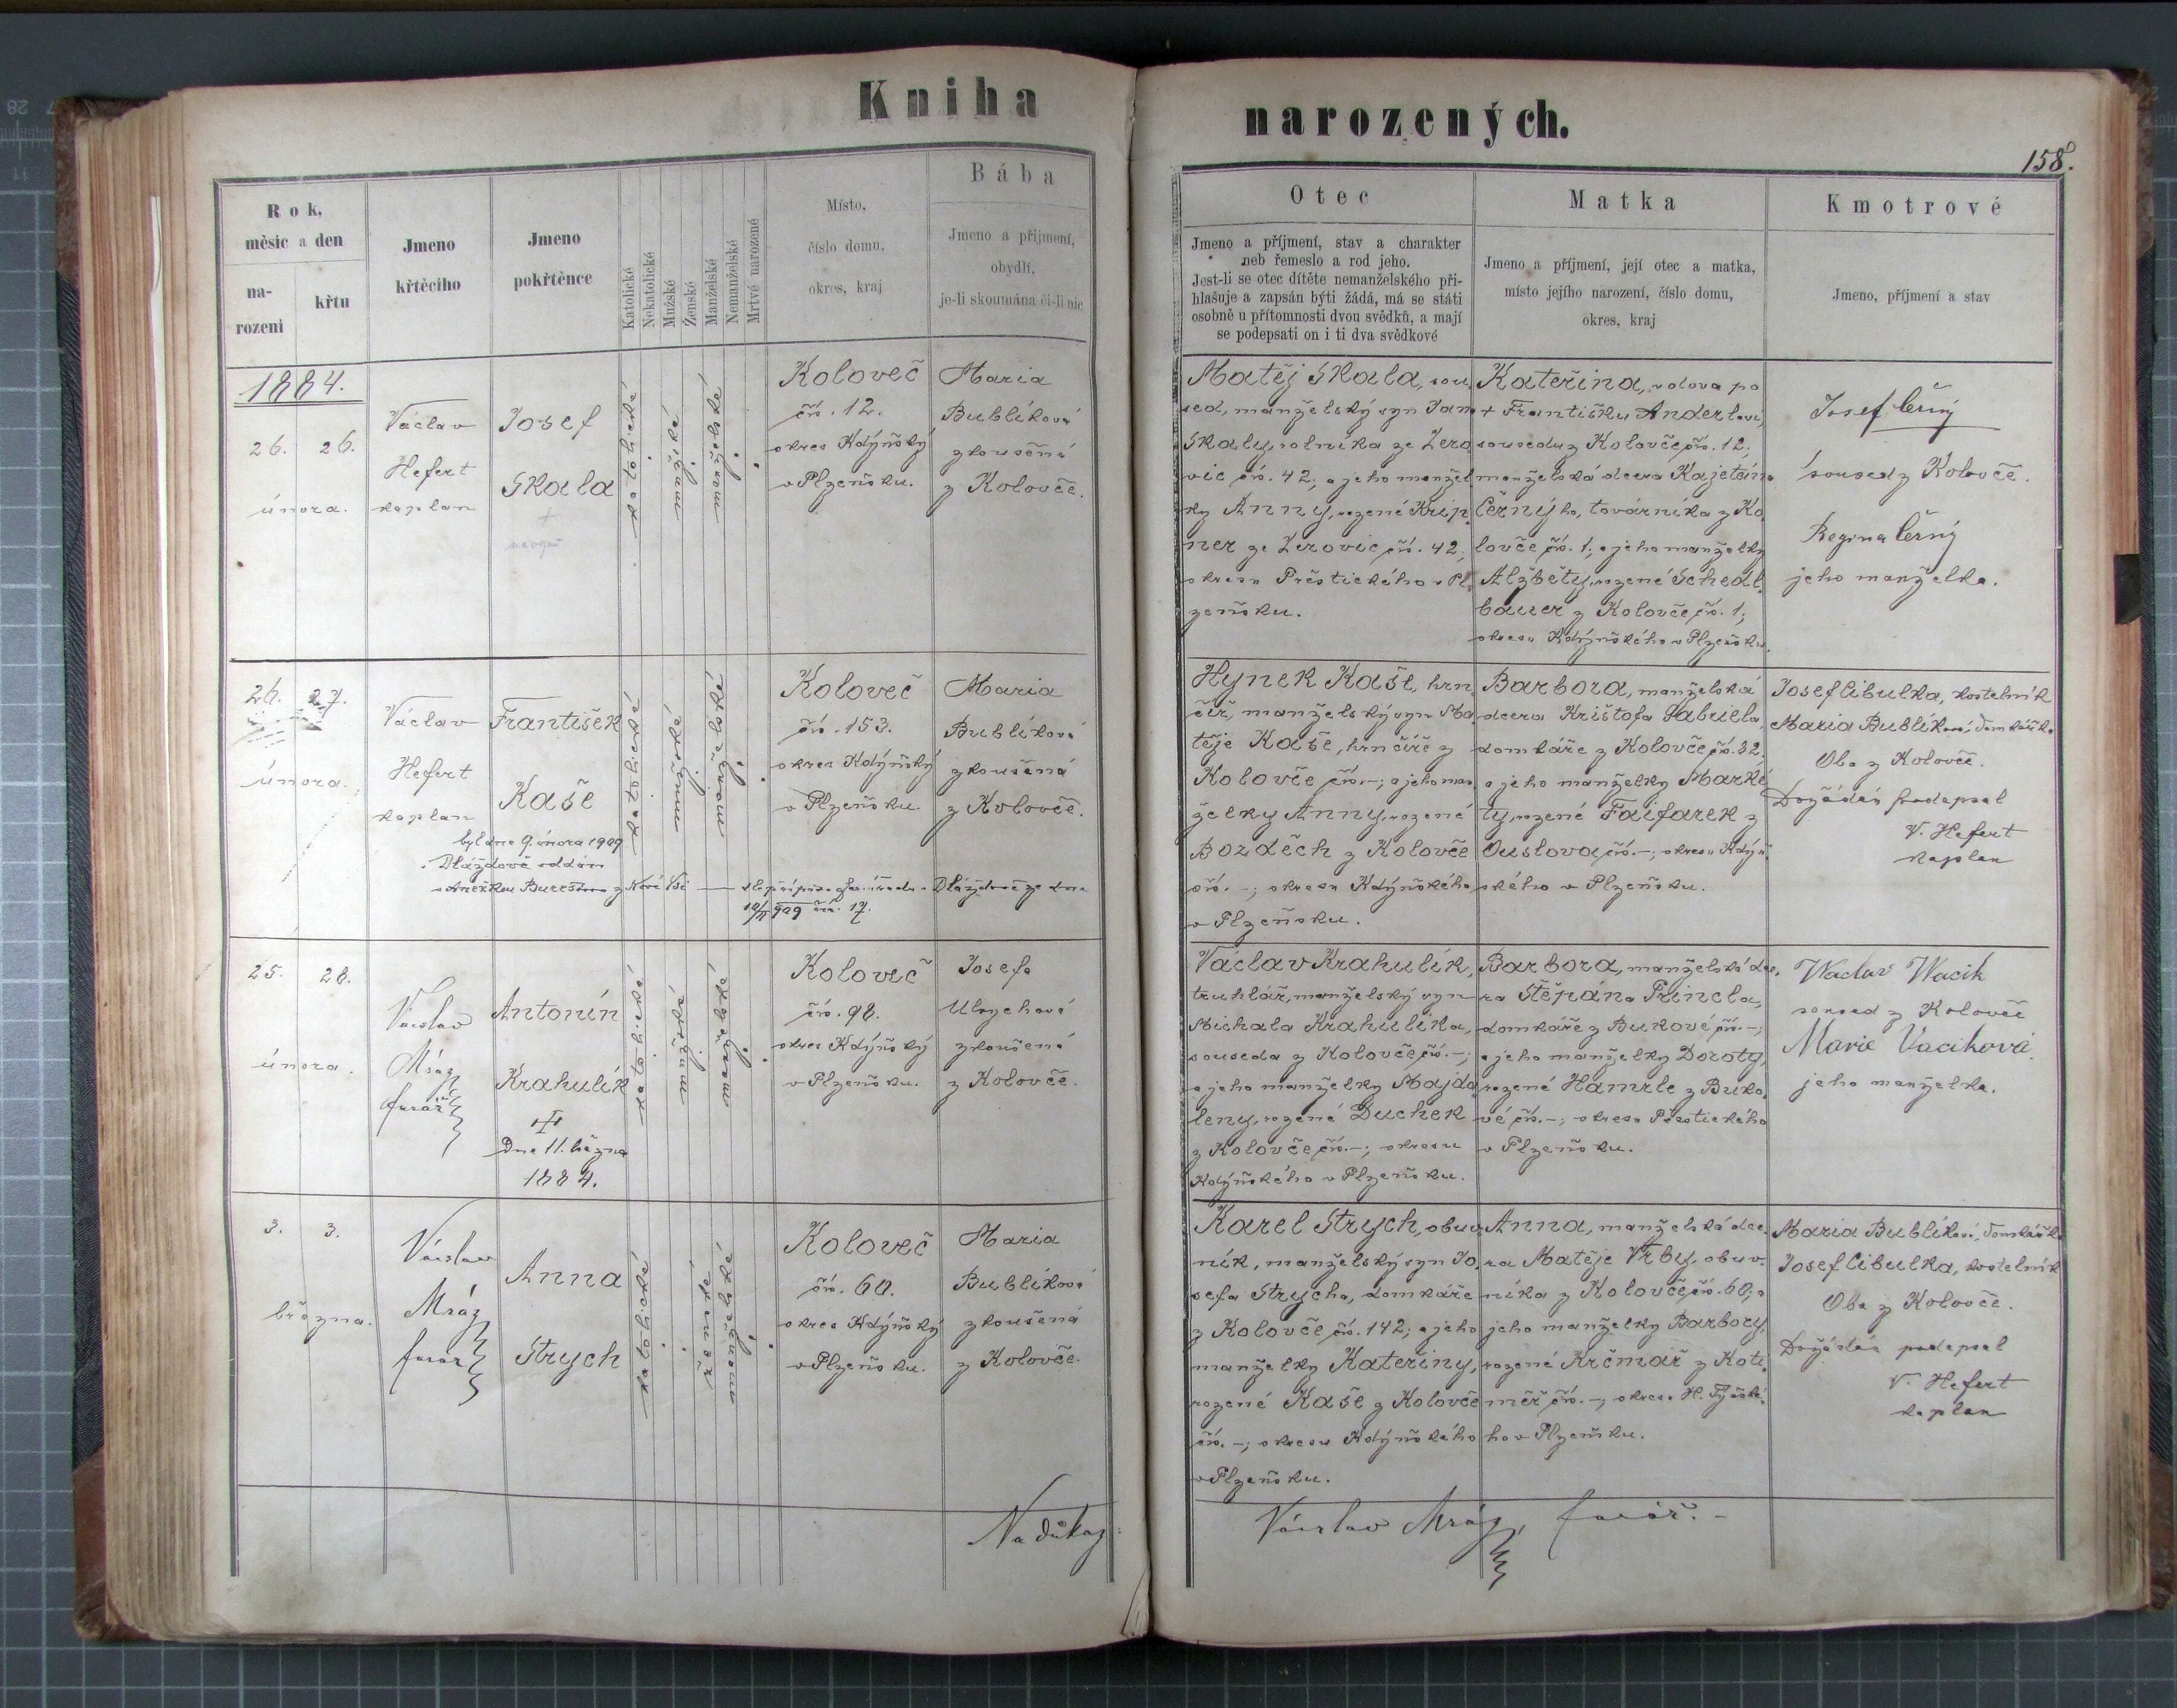 Kniha
narozených.
158.
Rok,
měsíc a den
na-
rozeni
křtu
Jmeno
křtěcího
Jmeno
pokřtěnce
Katolické
Nekatolické
Mužské
Ženské
Manželské
Nemanželské
Mrtvé narozené
Místo,
číslo domu,
okres, kraj
Bába
Jmeno a přijmení,
obydlí,
je-li skoumána či-li nic
Otec
Jmeno a příjmení, stav a charakter
neb řemeslo a rod jeho.
Jest-li se otec dítěte nemanželského při-
hlašuje a zapsán býti žádá, má se státi
osobně u přítomnosti dvou svědků, a mají
se podepsati on i ti dva svědkové
Matka
Jmeno a příjmení, její otec a matka,
místo jejího narození, číslo domu,
okres, kraj
Kmotrové
Jmeno, příjmení a stav
1884.
26. 26.
února.
Václav
Hefert
kaplan
Josef
Skala
katolické
mužské
manželské
Koloveč
čís. 12.
okres Kdýňský
v Plzeňsku.
Maria
Bublíková
zkoušená
z Kolovče.
Matěj Skala, sou
sed, manželský syn Jana
Skaly, rolníka ze Zero
vic čís. 42; a jeho manžel
ky Anny, rozené Krip
ner ze Zerovic čís. 42;
okresu Přestického v Pl
zeňsku.
Kateřina, vdova po
+ Františku Anderlovi,
sousedu z Kolovče čís. 12;
manželská dcera Kajetána
Černýho, továrníka z Ko
lovče čís. 1; a jeho manželky
Alžběty, rozené Schedl
bauer z Kolovče čís. 1;
okresu Kdýňského v Plzeňsku.
Josef Černý
soused z Kolovče.
Regina Černý
jeho manželka.
26. 27.
února.
Václav
Hefert
kaplan
František
Kaše
byl dne 9. února 1909
v Dlážďově oddán
s Anežkou z Nové Vsi — dle přípisu far. úřadu v Dlážďově ze dne
10/II 909 čís. 17.
katolické
mužské
manželské
Koloveč
čís. 153.
okres Kdýňský
v Plzeňsku.
Maria
Bublíková
zkoušená
z Kolovče.
Hynek Kaše, hrn
číř, manželský syn Ma
těje Kaše, hrnčíře z
Kolovče čís. -; a jeho man
želky Anny, rozené
Bozděch z Kolovče
čís. -; okresu Kdýňského
v Plzeňsku.
Barbora, manželská
dcera Krištofa Gabriela,
domkáře z Kolovče čís. 32,
a jeho manželky Marké
ty, rozené Faifarek z
Ouslova čís. -; okresu Kdýň
ského v Plzeňsku.
Josef Cibulka, kostelník
Maria Bublíková, domkářka
Oba z Kolovče.
Dožádán podepsal
V. Hefert
kaplan
25. 28.
února.
Václav
Mráz
farář
Antonín
Krahulík
Dne 11. března
1884.
katolické
mužské
manželské
Koloveč
čís. 98.
okres Kdýňský
v Plzeňsku.
Josefa
Ulrychová
zkoušená
z Kolovče.
Václav Krahulík,
truhlář, manželský syn
Michala Krahulíka,
souseda z Kolovče čís. -;
a jeho manželky Majda
leny, rozené Duchek
z Kolovče čís. -; okresu
Kdýňského v Plzeňsku.
Barbora, manželská dce
ra Štěpána Princla,
domkáře z Bukové čís. -;
a jeho manželky Doroty,
rozené Hamrle z Buko
vé čís. -; okresu Přestického
v Plzeňsku.
Waclav Wacik
soused z Kolovče
Marie Vaciková
jeho manželka.
3. 3.
března.
Václav
Mráz
farář
Anna
Strych
katolické
ženské
manželské
Koloveč
čís. 60.
okres Kdýňský
v Plzeňsku.
Maria
Bublíková
zkoušená
z Kolovče.
Karel Strych, obuv
ník, manželský syn Jo
sefa Strycha, domkáře
z Kolovče čís. 142; a jeho
manželky Kateřiny,
rozené Kaše z Kolovče
čís. -; okresu Kdýňského
v Plzeňsku.
Anna, manželská dce
ra Matěje Vrby, obuv
níka z Kolovče čís. 60; a
jeho manželky Barbory,
rozené Krčmář z Koti
měř čís. -; okresu H. Týnské
ho v Plzeňsku.
Maria Bublíková, domkářka
Josef Cibulka, kostelník
Oba z Kolovče.
Dožádán podepsal
V. Hefert
kaplan
Na důkaz:
Václav Mráz, farář.